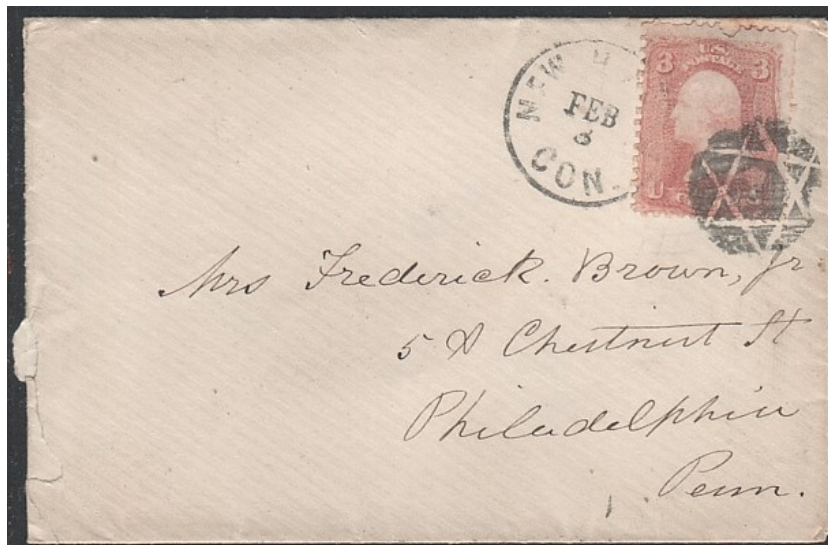 NEW H
FEB
3
CON.
3 U.S. POSTAGE 3
U
Mrs Frederick. Brown, Jr
5 & Chestnut St
Philadelphia
Penn.